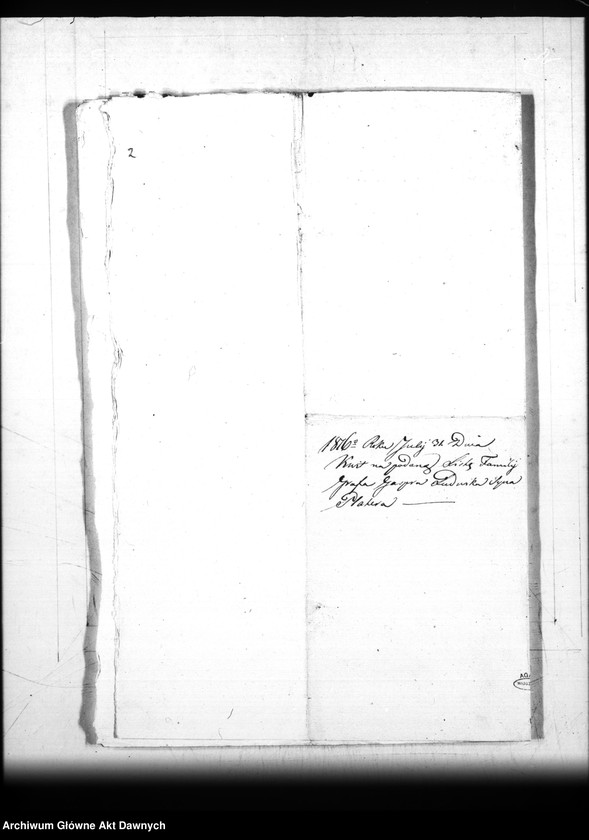 2
1816º Roku Julij 31 Dnia
Kwit na podaną Listę Familij
Grafa Gaspra Ludwika Syna
Platera
Archiwum Główne Akt Dawnych